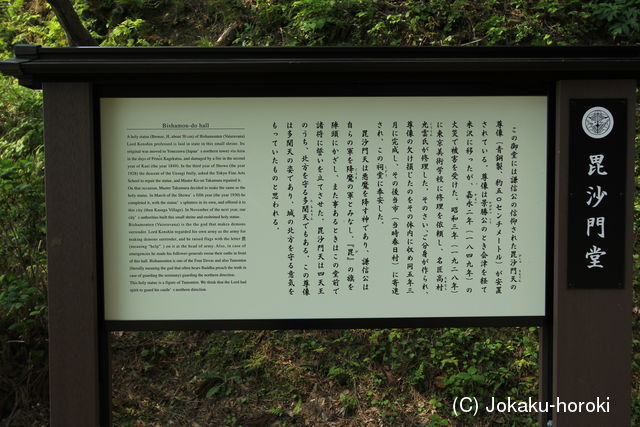 Bishamon-do hall
A holy statue (Bronze, H. about 50 cm) of Bishamonten (Vaisravana)
Lord Kenshin professed is laid in state in this small shrine. Its
original was moved to Yonezawa (Japan's northern town) via Aizu
in the days of Prince Kagekatsu, and damaged by a fire in the second
year of Kaei (the year 1849). In the third year of Showa (the year
1928) the descent of the Uesugi finily, asked the Tokyo Fine Arts
School to repair the statue, and Master Ko-un Takamura repaired it.
On that occasion, Master Takamura decided to make the same as the
holy statue. In March of the Showa's fifth year (the year 1930) he
completed it, with the statue's splinters in its own, and offered it to
this city (then Kasuga Village). In November of the next year, our
city's authorities built this small shrine and enshrined holy statue.
Bishamonten (Vaisravana) is the the god that makes demons
surrender. Lord Kenshin regarded his own army as the army for
making demons surrender, and he raised flags with the letter 毘
(meaning "help".) on it at the head of army. Also, in case of
emergencies he made his follower generals swear their oaths in front
of the hall. Bishamonten is one of the Four Devas and also Tamonten
(literally meaning the god that often hears Buddha preach the truth in
case of guarding the sermony) guarding the northern direction.
This holy statue is a figure of Tamonten. We think that the Lord had
spirit to guard his castle's northern direction.
この御堂には謙信公の信仰された毘沙門天の
尊像（青銅製、約五〇センチメートル）が安置
されている。尊像は景勝公のとき会津を経て
米沢に移ったが、嘉永二年（一八四九年）の
火災で被害を受けた。昭和三年（一九二八年）
に東京美術学校に修理を依頼し、名匠高村
光雲氏が修理した。そのさい、分身が作られ、
尊像の欠け損じたのをその体内に収め同五年三
月に完成し、その後当市（当時春日村）に寄進
され、この祠堂に奉安した。
毘沙門天は悪魔を降す神であり、謙信公は
自らの軍を降魔の軍とみなし、『毘』の旗を
陣頭にかざし、また事あるときはこの堂前で
諸将に誓いを立てさせた。毘沙門天は四天王
のうち、北方を守る多聞天でもある。この尊像
は多聞天の姿であり、城の北方を守る意気を
もっていたものと思われる。
毘沙門堂
(C) Jokaku-horoki